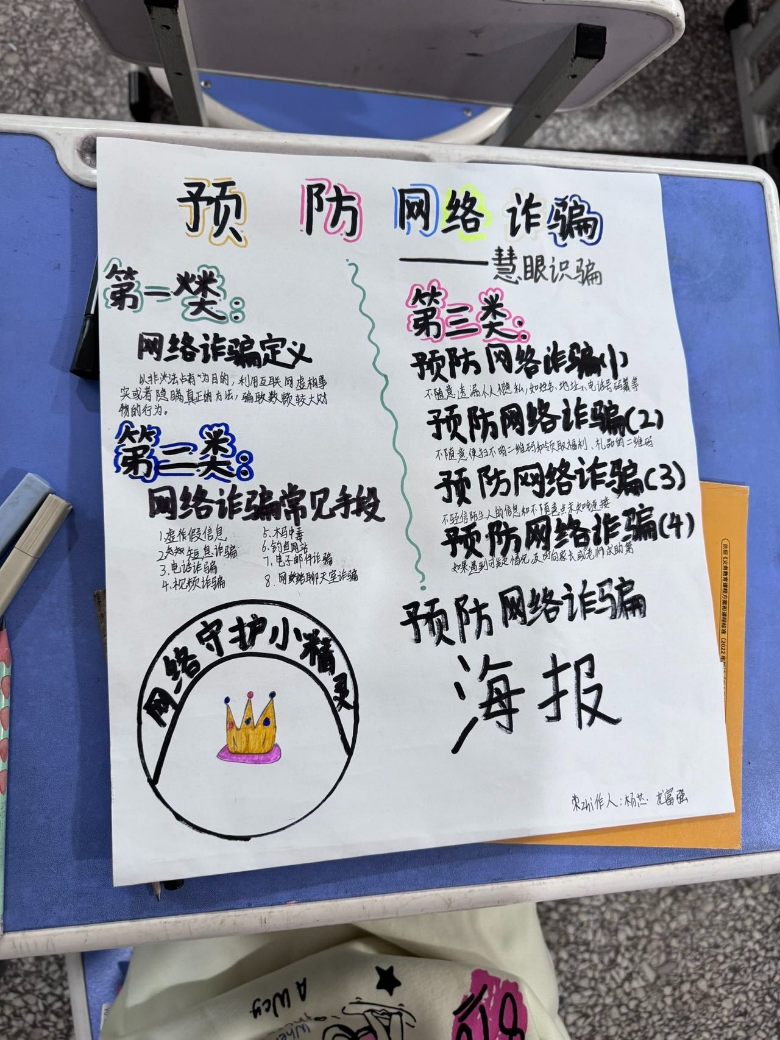 预防网络诈骗
——慧眼识骗
第一类:
网络诈骗定义
以非法占有"为目的,利用互联网虚构事
实或者隐瞒真正的方法,骗取数额较大财
物的行为。
第二类:
网络诈骗常见手段
1.虚作假信息
短息诈骗
3.电话诈骗
4.视频诈骗
5.木马中毒
6.钓鱼网站
7.电子邮件诈骗
8.网络聊天室诈骗
网络守护小精灵
第三类:
预防网络诈骗(1)
不随意透漏个人隐私,如姓名、地址、电话号码等
预防网络诈骗(2)
不随意便扫不明二维码如领取福利、礼品的二维码
预防网络诈骗(3)
不轻信陌生人的信息和不随意点未知链接
预防网络诈骗(4)
如果遇到可疑情况,及时向家长或老师求助
预防网络诈骗
海报
作人:杨芯
A Wcy